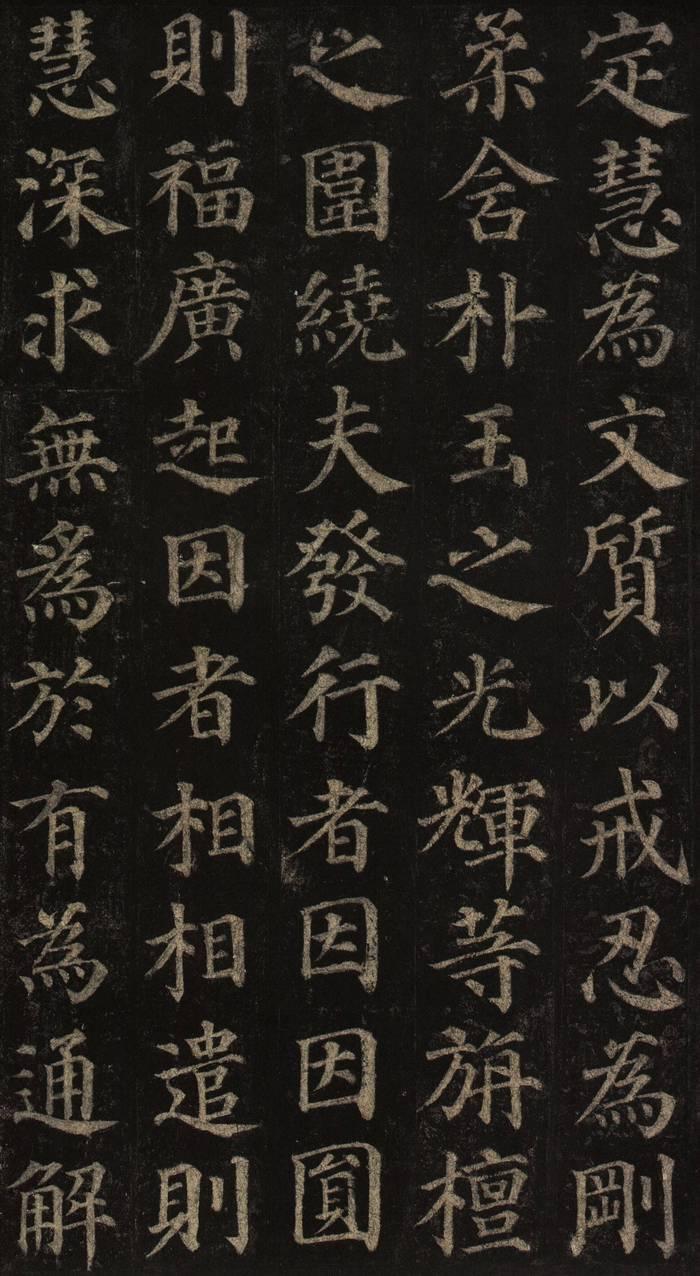 定慧為文質以戒忍為剛
柔含朴玉之光輝等旃檀
之圍繞夫發行者因因圓
則福廣起因者相相遣則
慧深求無為於有為通解